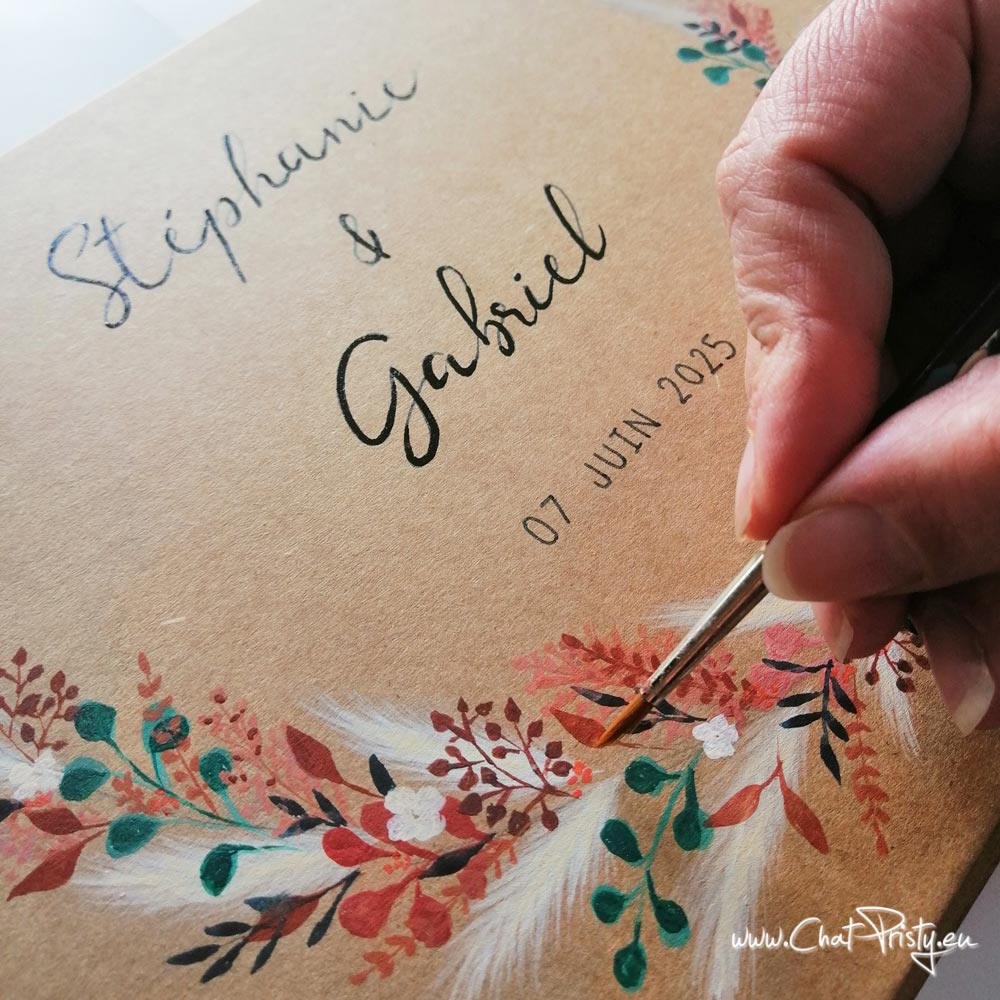 Stéphanie
&
Gabriel
07 JUIN 2025
www.ChatPristy.eu